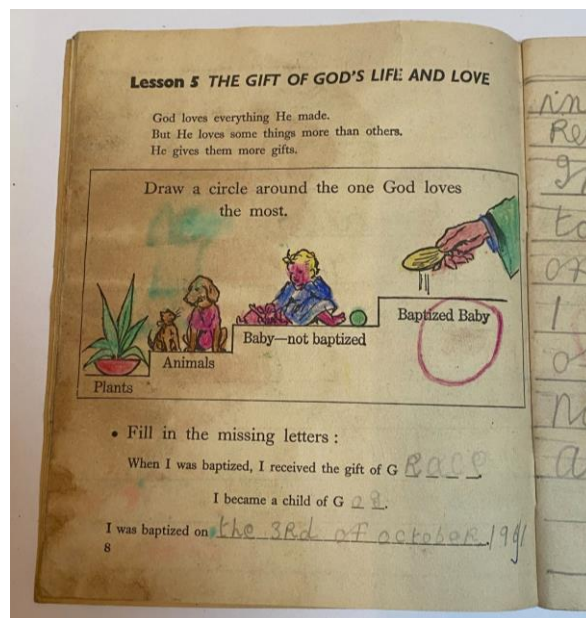 Lesson 5 THE GIFT OF GOD'S LIFE AND LOVE
God loves everything He made.
But He loves some things more than others.
He gives them more gifts.
Draw a circle around the one God loves
the most.
Plants
Animals
Baby—not baptized
Baptized Baby
• Fill in the missing letters :
When I was baptized, I received the gift of G Race
I became a child of G od.
I was baptized on the 3Rd of octobeR 1991
8
in
Re
g
to
or
1
o
m
a